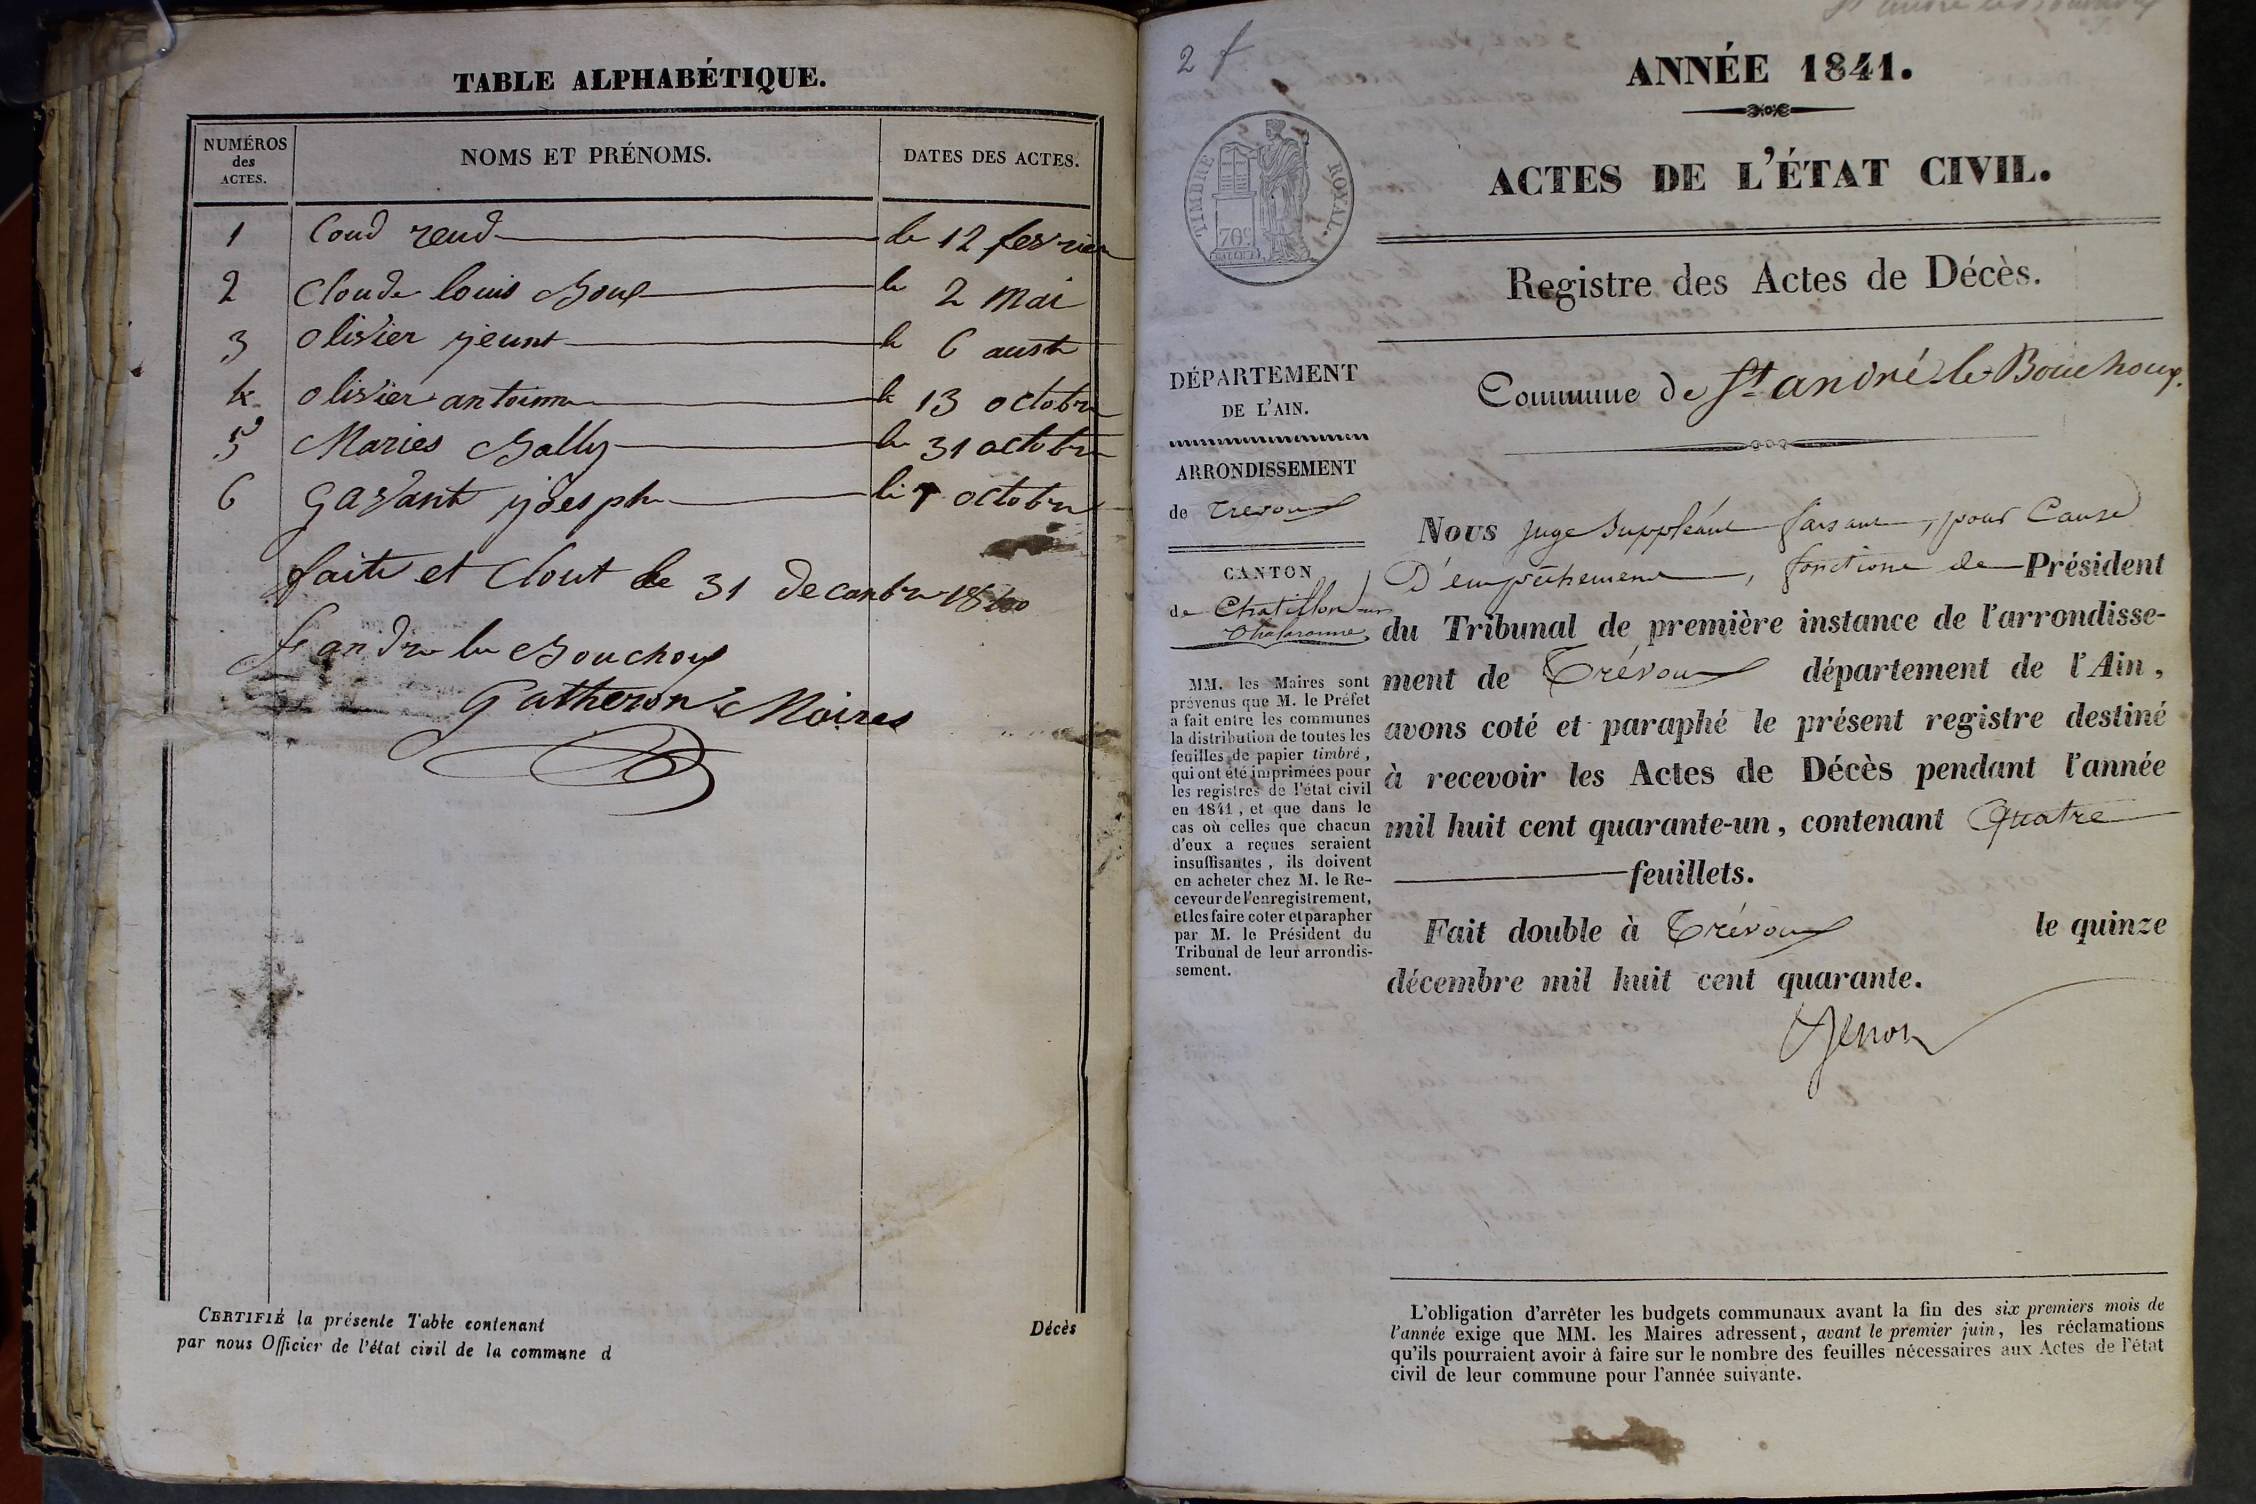 TABLE ALPHABÉTIQUE.
NUMÉROS
des
ACTES.
NOMS ET PRÉNOMS.
DATES DES ACTES.
1 Coud rend le 12 fevrier
2 Cloude louis Boux le 2 mai
3 olivier le 6 aust
4 olivier antoinne le 13 octobre
5 Maries Bally le 31 octobre
6 gavant le octobre
faite et Clout le 31 decanbre 1840
St andre le Bouchoux
Gatheron Maires
CERTIFIÉ la présente Table contenant Décès
par nous Officier de l'état civil de la commune d
2 f
TIMBRE ROYAL.
70c
ANNÉE 1841.
ACTES DE L'ÉTAT CIVIL.
Registre des Actes de Décès.
Commune de St andré-le-Bouchoux.
DÉPARTEMENT
DE L'AIN.
ARRONDISSEMENT
de Trevoux
CANTON
de Chatillon-sur
Chalaronne
MM. les Maires sont
prévenus que M. le Préfet
a fait entre les communes
la distribution de toutes les
feuilles de papier timbré,
qui ont été imprimées pour
les registres de l'état civil
en 1841, et que dans le
cas où celles que chacun
d'eux a reçues seraient
insuffisantes, ils doivent
en acheter chez M. le Re-
ceveur de l'enregistrement,
et les faire coter et parapher
par M. le Président du
Tribunal de leur arrondis-
sement.
Nous juge suppléant faisant, pour Cause
D'empêchement, fonctions de Président
du Tribunal de première instance de l'arrondisse-
ment de Trévoux département de l'Ain,
avons coté et paraphé le présent registre destiné
à recevoir les Actes de Décès pendant l'année
mil huit cent quarante-un, contenant Quatre
feuillets.
Fait double à Trévoux le quinze
décembre mil huit cent quarante.
L'obligation d'arrêter les budgets communaux avant la fin des six premiers mois de
l'année exige que MM. les Maires adressent, avant le premier juin, les réclamations
qu'ils pourraient avoir à faire sur le nombre des feuilles nécessaires aux Actes de l'état
civil de leur commune pour l'année suivante.